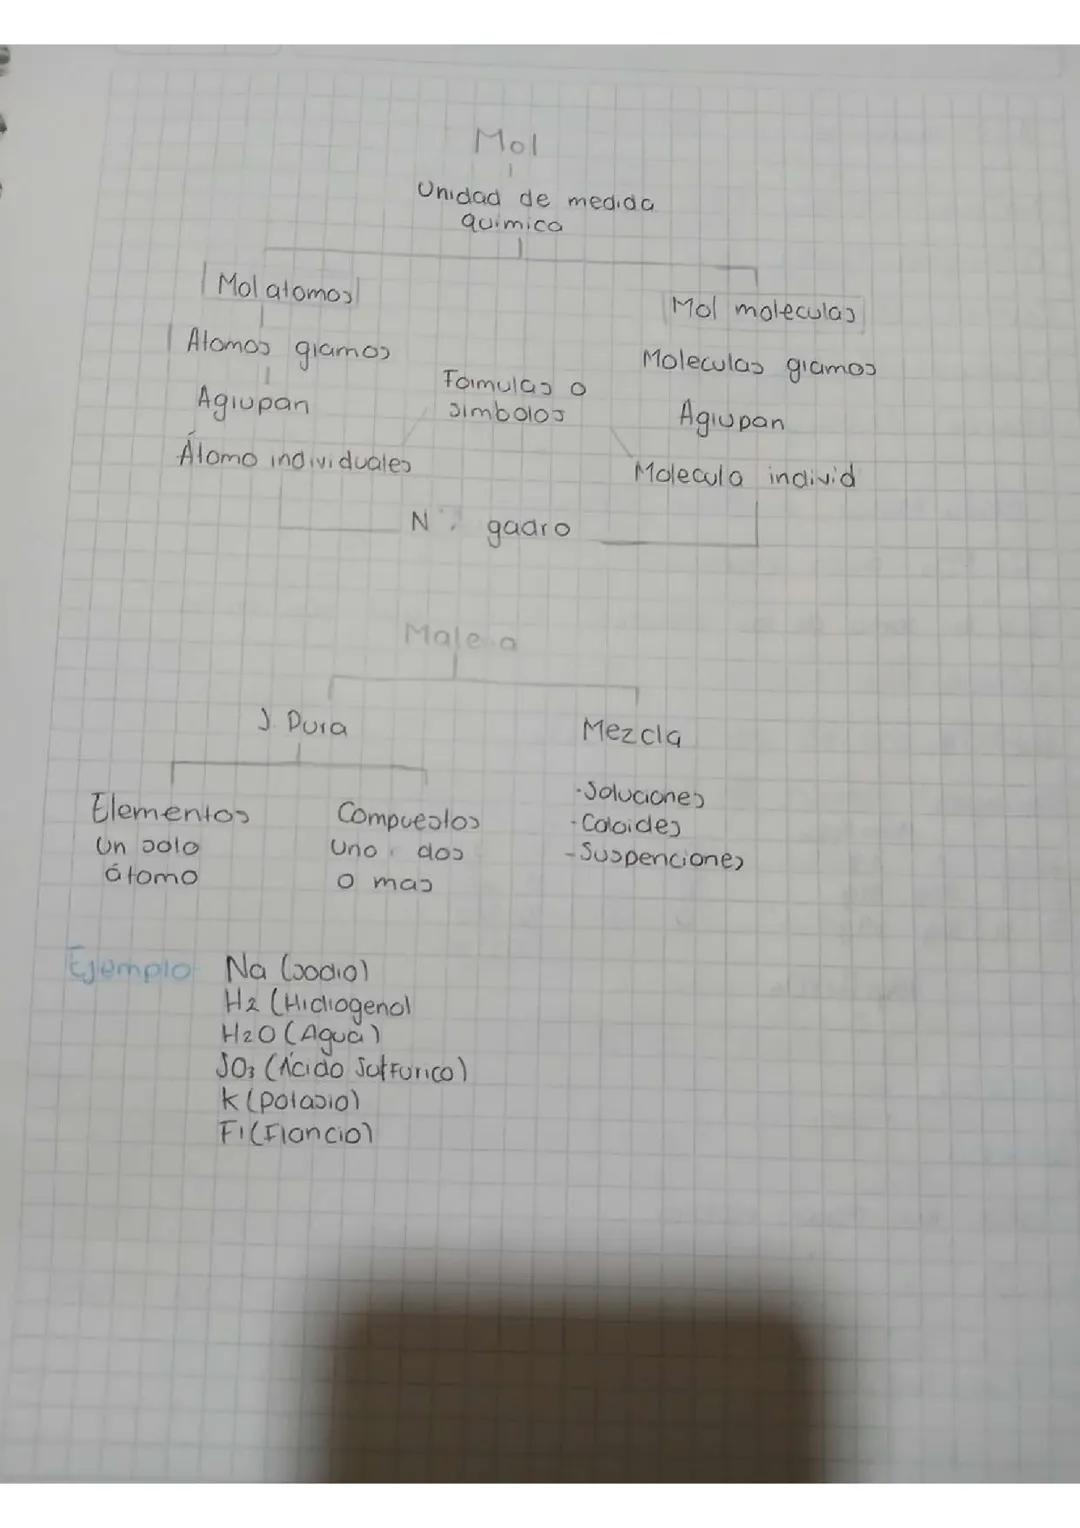 Mol
Unidad de medida
quimica
Mol atomos
Mol moleculas
Atomos gramos
Moleculas gramos
Formulas o
simbolos
Agrupan
Agrupan
Átomo individuales
Molecula individ
N. gadro
S. Pura
Mezcla
Elementos
Un solo
átomo
Compuestos
Uno, dos
o mas
-Soluciones
-Coloides
-Suspenciones
Ejemplo Na (sodio)
H2 (Hidrogeno)
H2O (Agua)
SO3 (Ácido Sulfurico)
K (potasio)
Fr (Francio)